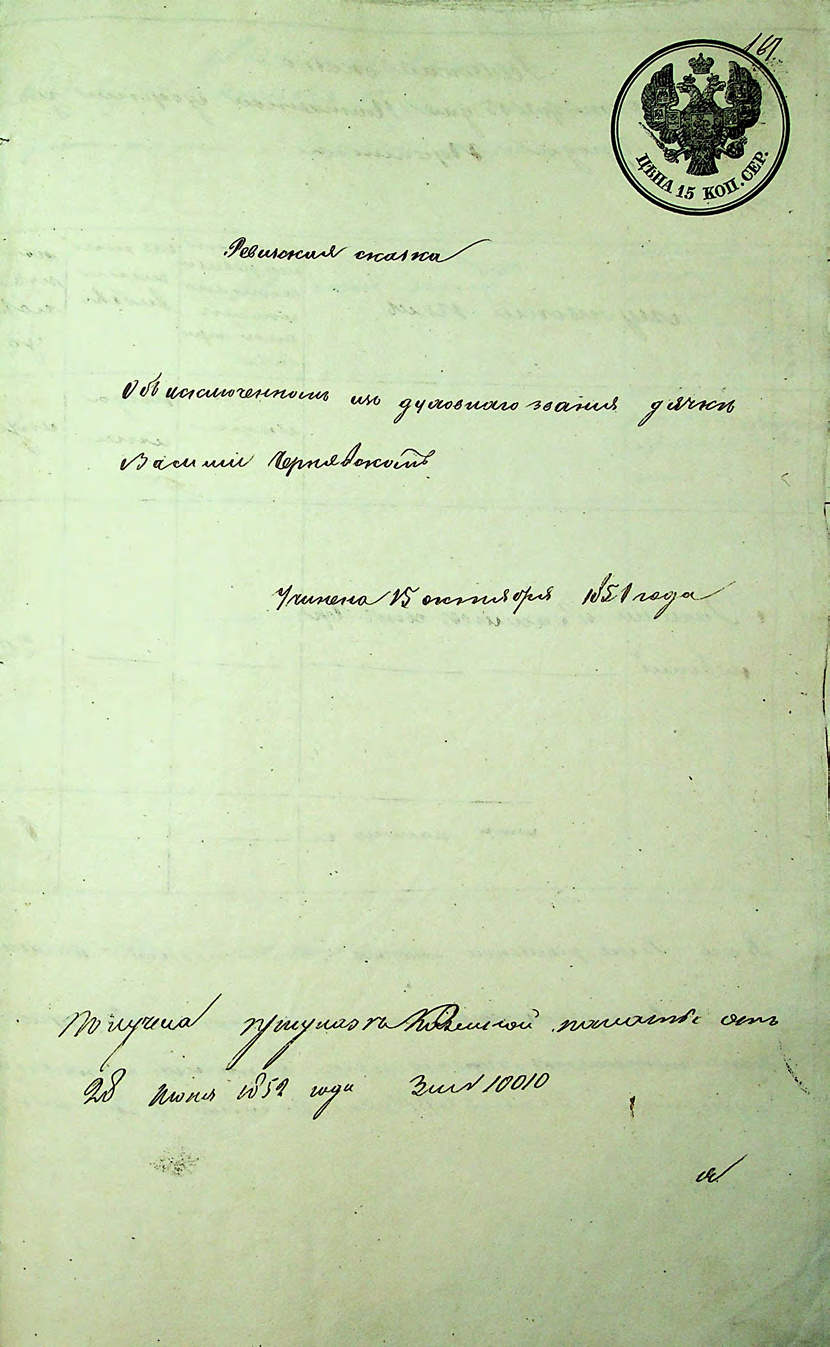 167.
ЦѢНА 15 КОП. СЕР.
Ревижская сказка
Объ исключенномъ изъ духовнаго звания дячкѣ
Василии Чернявскомъ
Учинена 15 октября 1851 года
Получена при указѣ Казенной палаты отъ
28 Июня 1852 года За № 10010